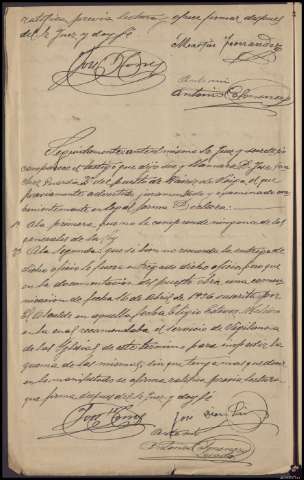 ratifica previa lectura y ofrece firmar despues
del Sr Juez y doy fé
Fernandez
Seguidamente ante el mismo Sr Juez y secretario
comparece el testigo que dijo ser y llamarse D. Jose
Guardia 2º del puesto de el que
previamente advertido juramentado y examinado con-
venientemente en legal forma Declara:
1ª A la primera que no le comprende ninguna de las
generales de la Ley
2ª A la segunda que si bien no recuerda la entrega de
dicho oficio le fuera entregado dicho oficio porque
en la documentacion del puesto obra una comu-
nicacion de fecha 16 de Abril de 1936 suscrito por
El Alcalde en aquella fecha Eligio
en la cual recomendaba el servicio de vigilancia
de las Iglesias de este termino para impedir la
quema de las mismas, sin que tenga mas que decir
en lo manifestado se afirma ratifica previa lectura
que firma despues del Sr Juez y doy fé